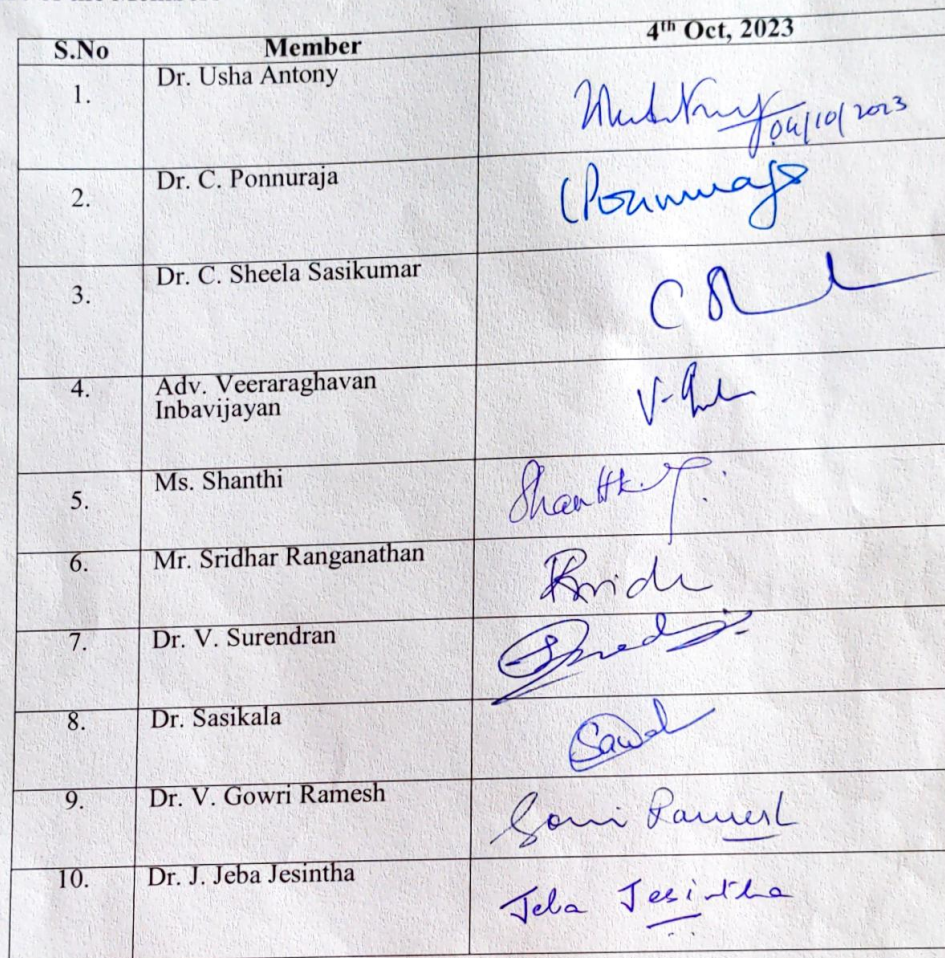 S.No Member 4th Oct, 2023
1. Dr. Usha Antony
04/10/2023
2. Dr. C. Ponnuraja
CPonnuraja
3. Dr. C. Sheela Sasikumar
4. Adv. Veeraraghavan
Inbavijayan
5. Ms. Shanthi
Shanthi
6. Mr. Sridhar Ranganathan
7. Dr. V. Surendran
8. Dr. Sasikala
9. Dr. V. Gowri Ramesh
Gowri Ramesh
10. Dr. J. Jeba Jesintha
Jeba Jesintha